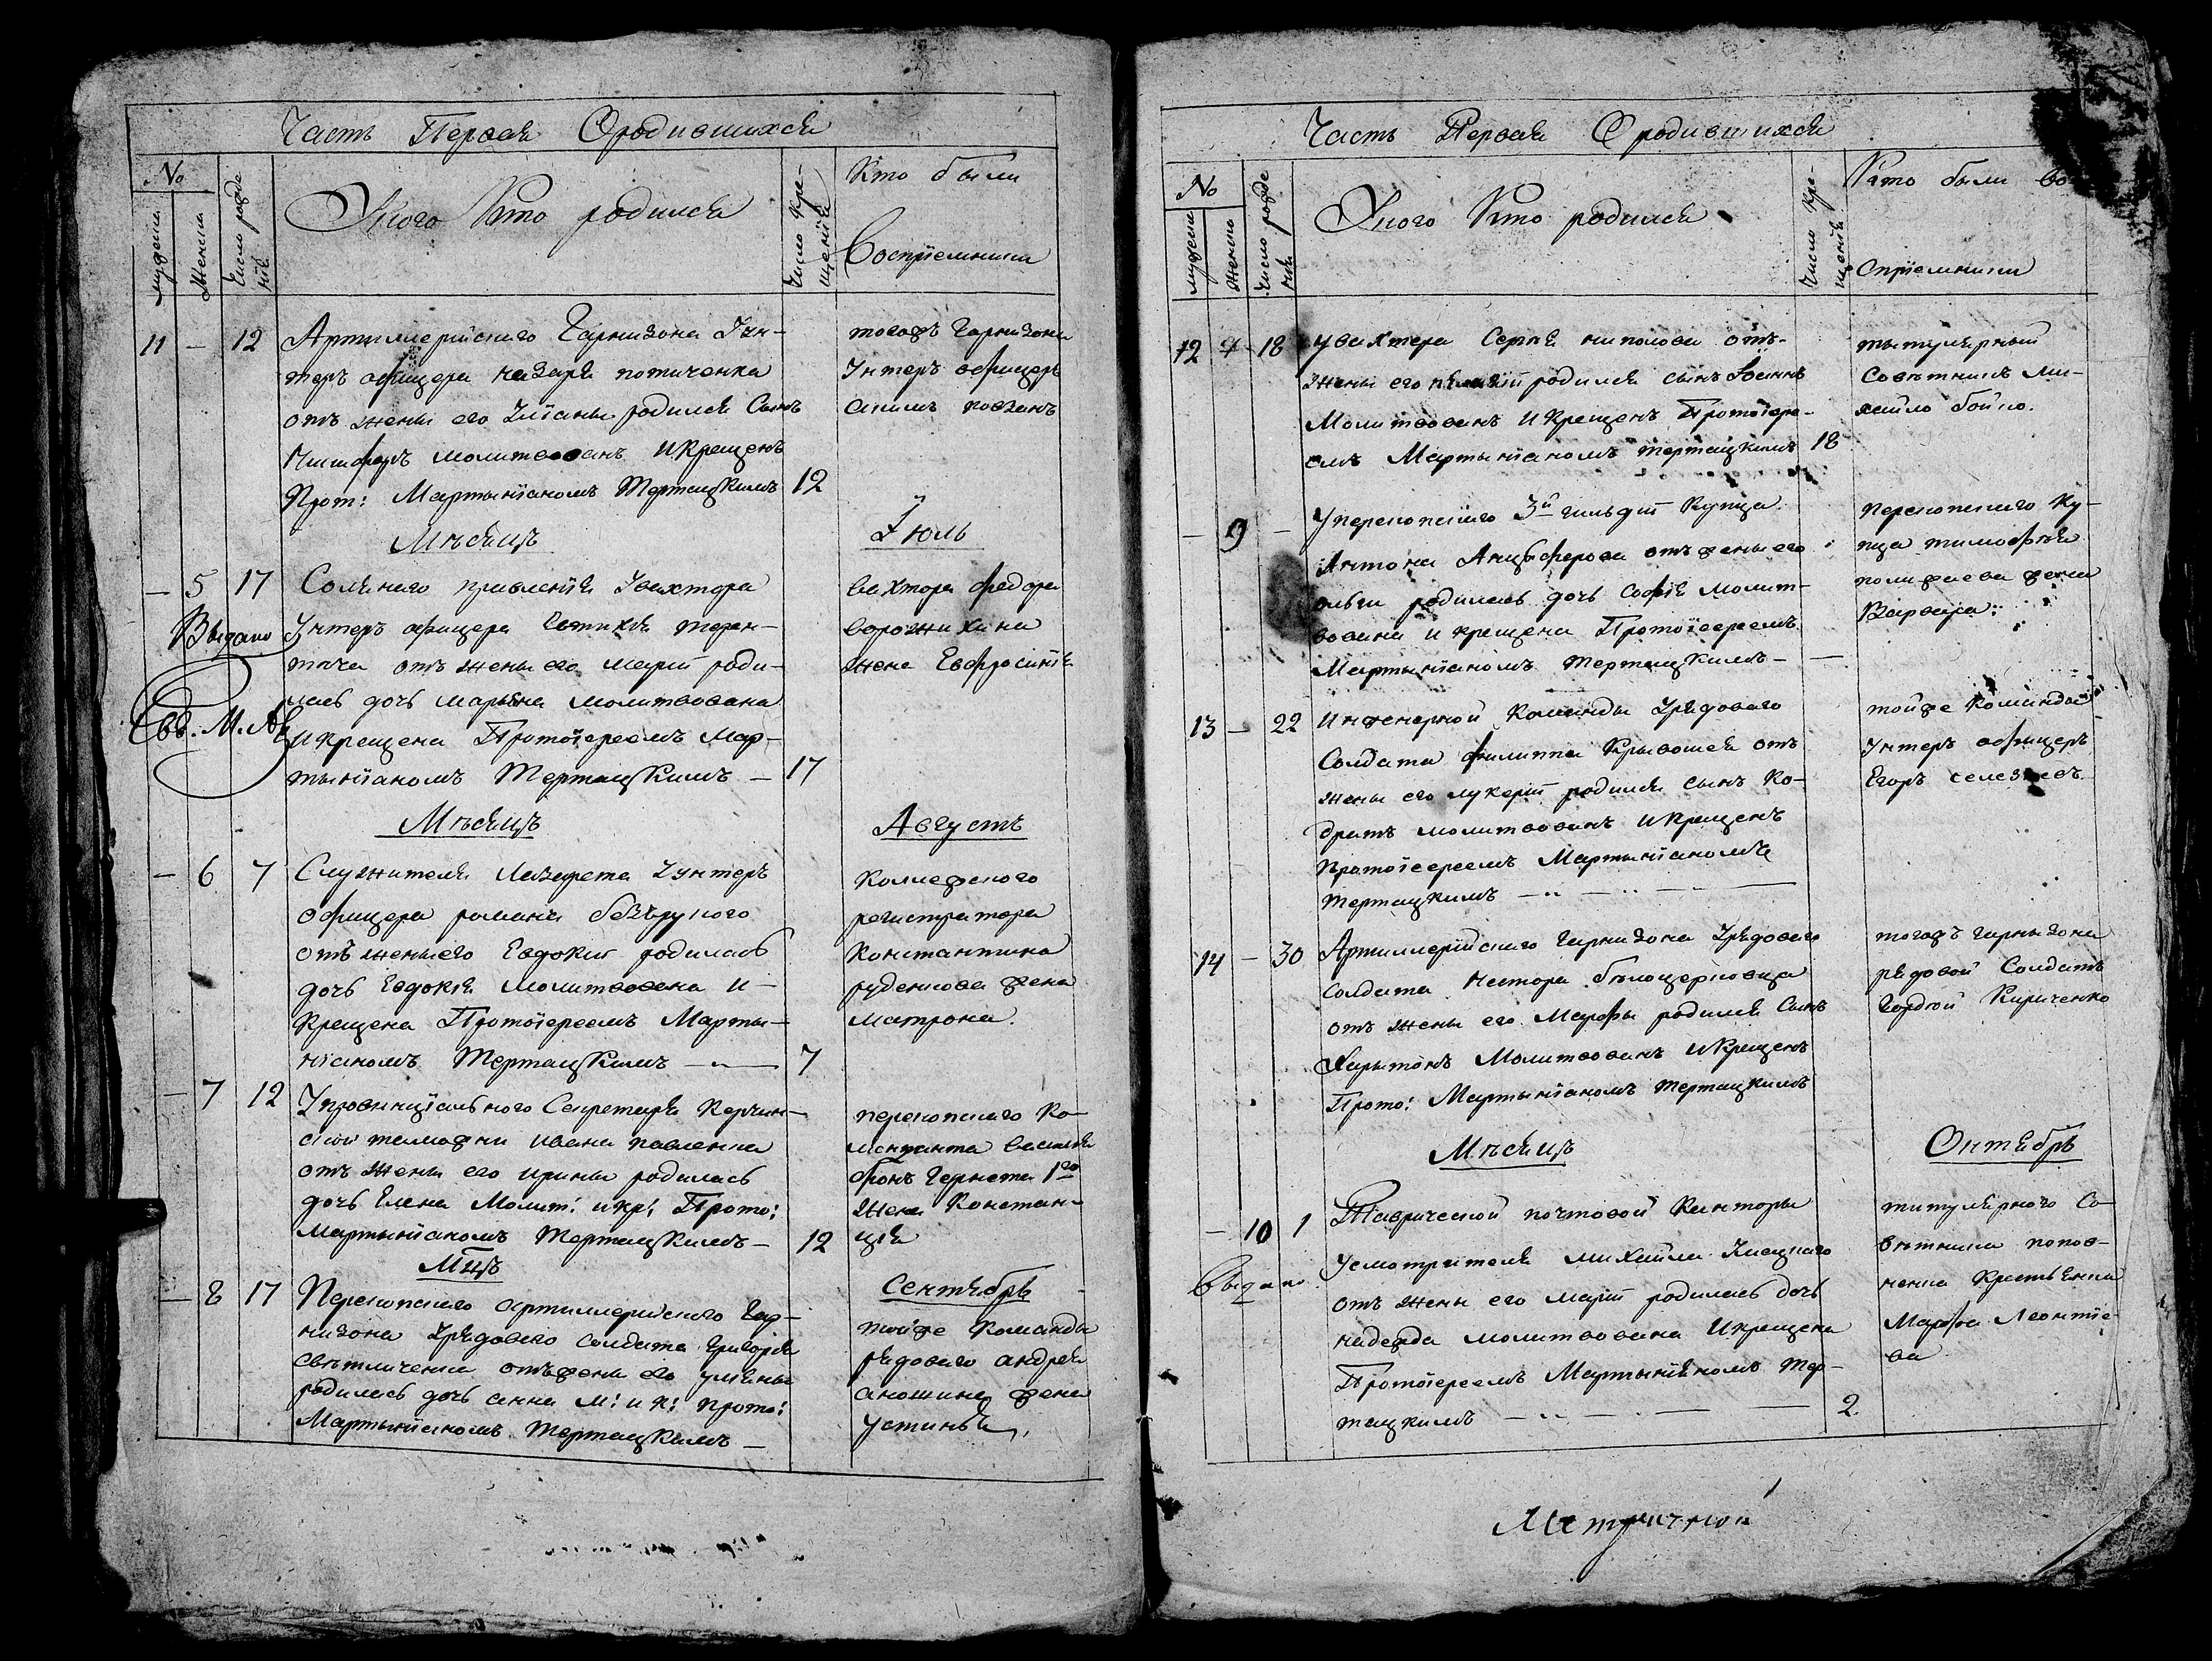 Часть Первая О родившихся
№
мужеска
Женска
Число рожде
нія
У кого Кто родился
Число Кре-
щенія
Кто были
Воспріемники
11 — 12 Артиллерійскаго Гарнизона Ун-
теръ офицера Назаря
отъ жены его Уліаны родился Сынъ
Никифоръ молитвованъ и Крещенъ
Прот: Мартыніаномъ Тертацкимъ 12
тогожъ Гарнизона
Унтеръ офицеръ
Мѣсяцъ Іюль
— 5 17 Солянаго правленія Увахтора
Унтеръ офицера
отъ жены его Маріи роди-
лась дочь Марьяна Молитвована
и крещена Протоіереемъ Мар-
тыніаномъ Тертацкимъ — 17
Выдано
Свд. М. №
вахтора Федора
ворожихина
жена Евфросинія
Мѣсяцъ Августъ
— 6 7 Служителя Лазарета Унтеръ
офицера романа безърукого
отъ жены его Евдокіи родилась
дочь Евдокія Молитвована и —
Крещена Протоіереемъ Марты-
ніаномъ Тертацкимъ — 7
Колежского
регистратора
Константина
руденкова жена
Матрона.
— 7 12 У провинціального Секретаря Керчин-
ской таможни Ивана павленка
отъ жены его ирины родилась
дочь Елена Молит: и кр: Прото:
Мартыніаномъ Тертацкимъ — 12
перекопскаго Ко-
менданта василія
фонъ Гернета 1го
Жена Констан-
ція
Мцъ Сентябрь
— 8 17 Перекопскаго артиллерійскаго Гар-
низона Урядоваго солдата григорія
свѣтличенка отъ жены его уліаны
родилась дочь анна м: и к: прото:
Мартыніаномъ Тертацкимъ —
тойже Команды
рядоваго андрея
анохина жена
устинья
Часть Первая О родившихся
№
мужеска
Женска
Число рожде
нія
У кого Кто родился
Число Кре-
щенія
Кто были Во
спріемники
12 18 Увахтера Сергѣя николова отъ
жены его родился сынъ Іоаннъ
Молитвованъ и Крещенъ Протоіере-
емъ Мартыніаномъ тертацкимъ 18
тытулярный
Совѣтникъ Ми-
хайло бойко.
— 9 — У перекопскаго 3й гильдіи Купца
Антона Анцыферова отъ жены его
ольги родилась дочь Софія молит-
вована и крещена Протоіереемъ
Мартыніаномъ Тертацкимъ — —
перекопскаго Ку-
пца тимофѣя
жена
Варвара:
13 — 22 Инженерной Команды Урядоваго
Солдата филиппа Кривошея отъ
жены его лукеріи родился сынъ Ко-
дратъ молитвованъ и Крещенъ
Протоіереемъ Мартыніаномъ
тертацкимъ
тойже Команды
Унтеръ офицеръ
Егоръ селезневъ
14 — 30 Артиллерійскаго гарнизона Урядоваго
солдата Нестора бѣлоцерковца
отъ жены его Марфы родился Сынъ
Харытонъ Молитвованъ и Крещенъ
Прото: Мартыніаномъ тертацкимъ
тогожъ гарнизона
рядовой Солдатъ
Гордѣй Кириченко
Мѣсяцъ Октябрь
— 10 1 Таврической почтовой Канторы
Усмотрителя михайла
отъ жены его маріи родилась дочь
надежда молитвована И крещена
Протоіереемъ Мартыніяномъ Тер-
тацкимъ 2
Выдано
титулярного Со-
вѣтника попов-
ченка Крестьянка
Марфа Леонтіе-
ва
Метричной